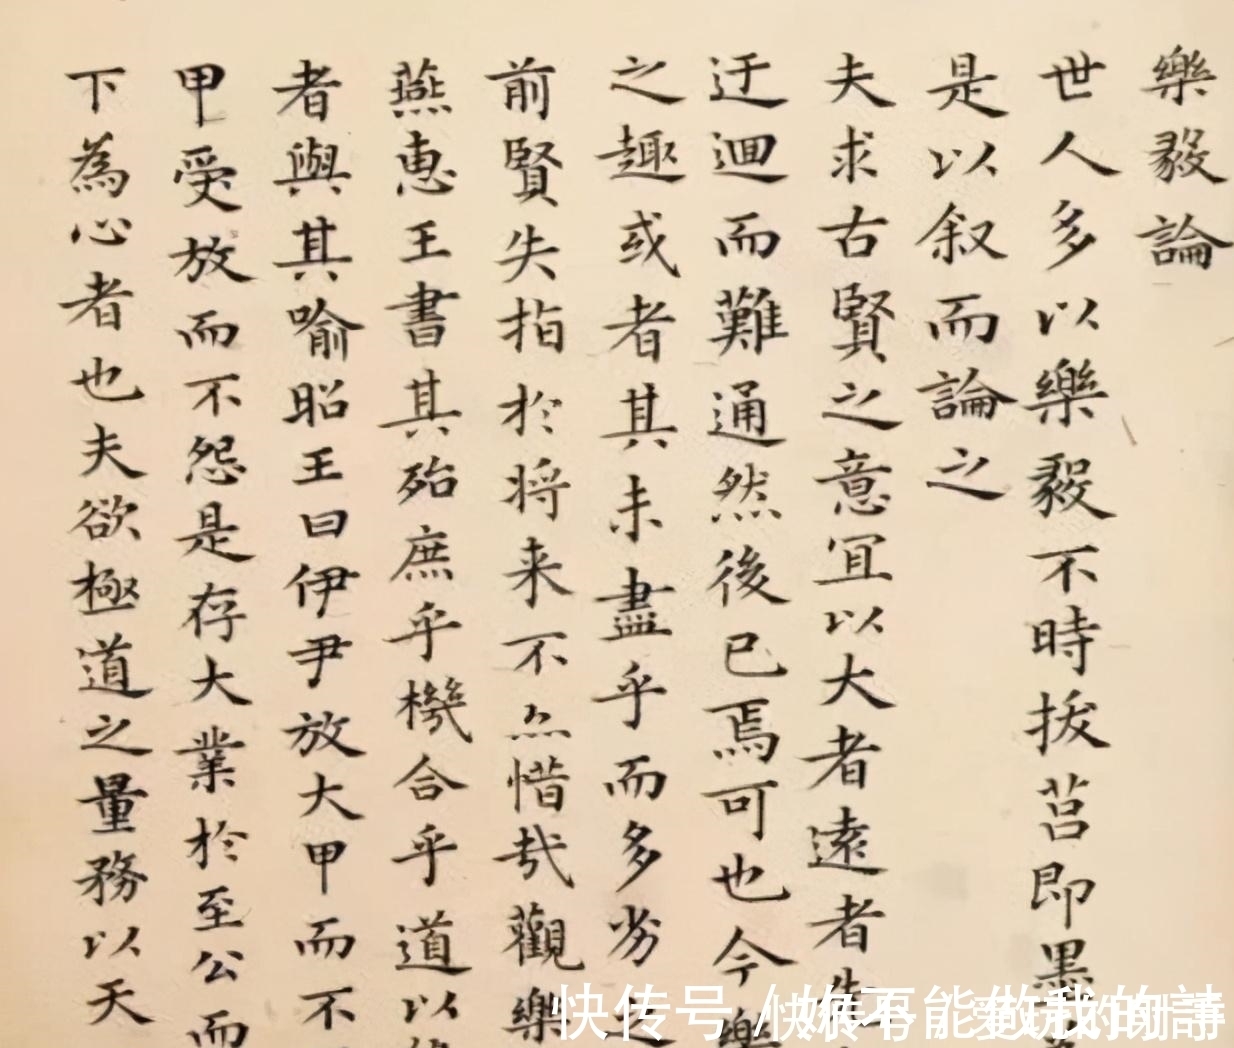 樂毅論
世人多以樂毅不時拔莒即墨
是以叙而論之
夫求古賢之意宜以大者遠者先
迂迴而難通然後已焉可也今樂
之趣或者其未盡乎而多劣之
前賢失指於将来不亦惜哉觀樂
燕惠王書其殆庶乎機合乎道以
者與其喻昭王曰伊尹放大甲而不
甲受放而不怨是存大業於至公而
下為心者也夫欲極道之量務以天
快传号 / 你不能做我的詩